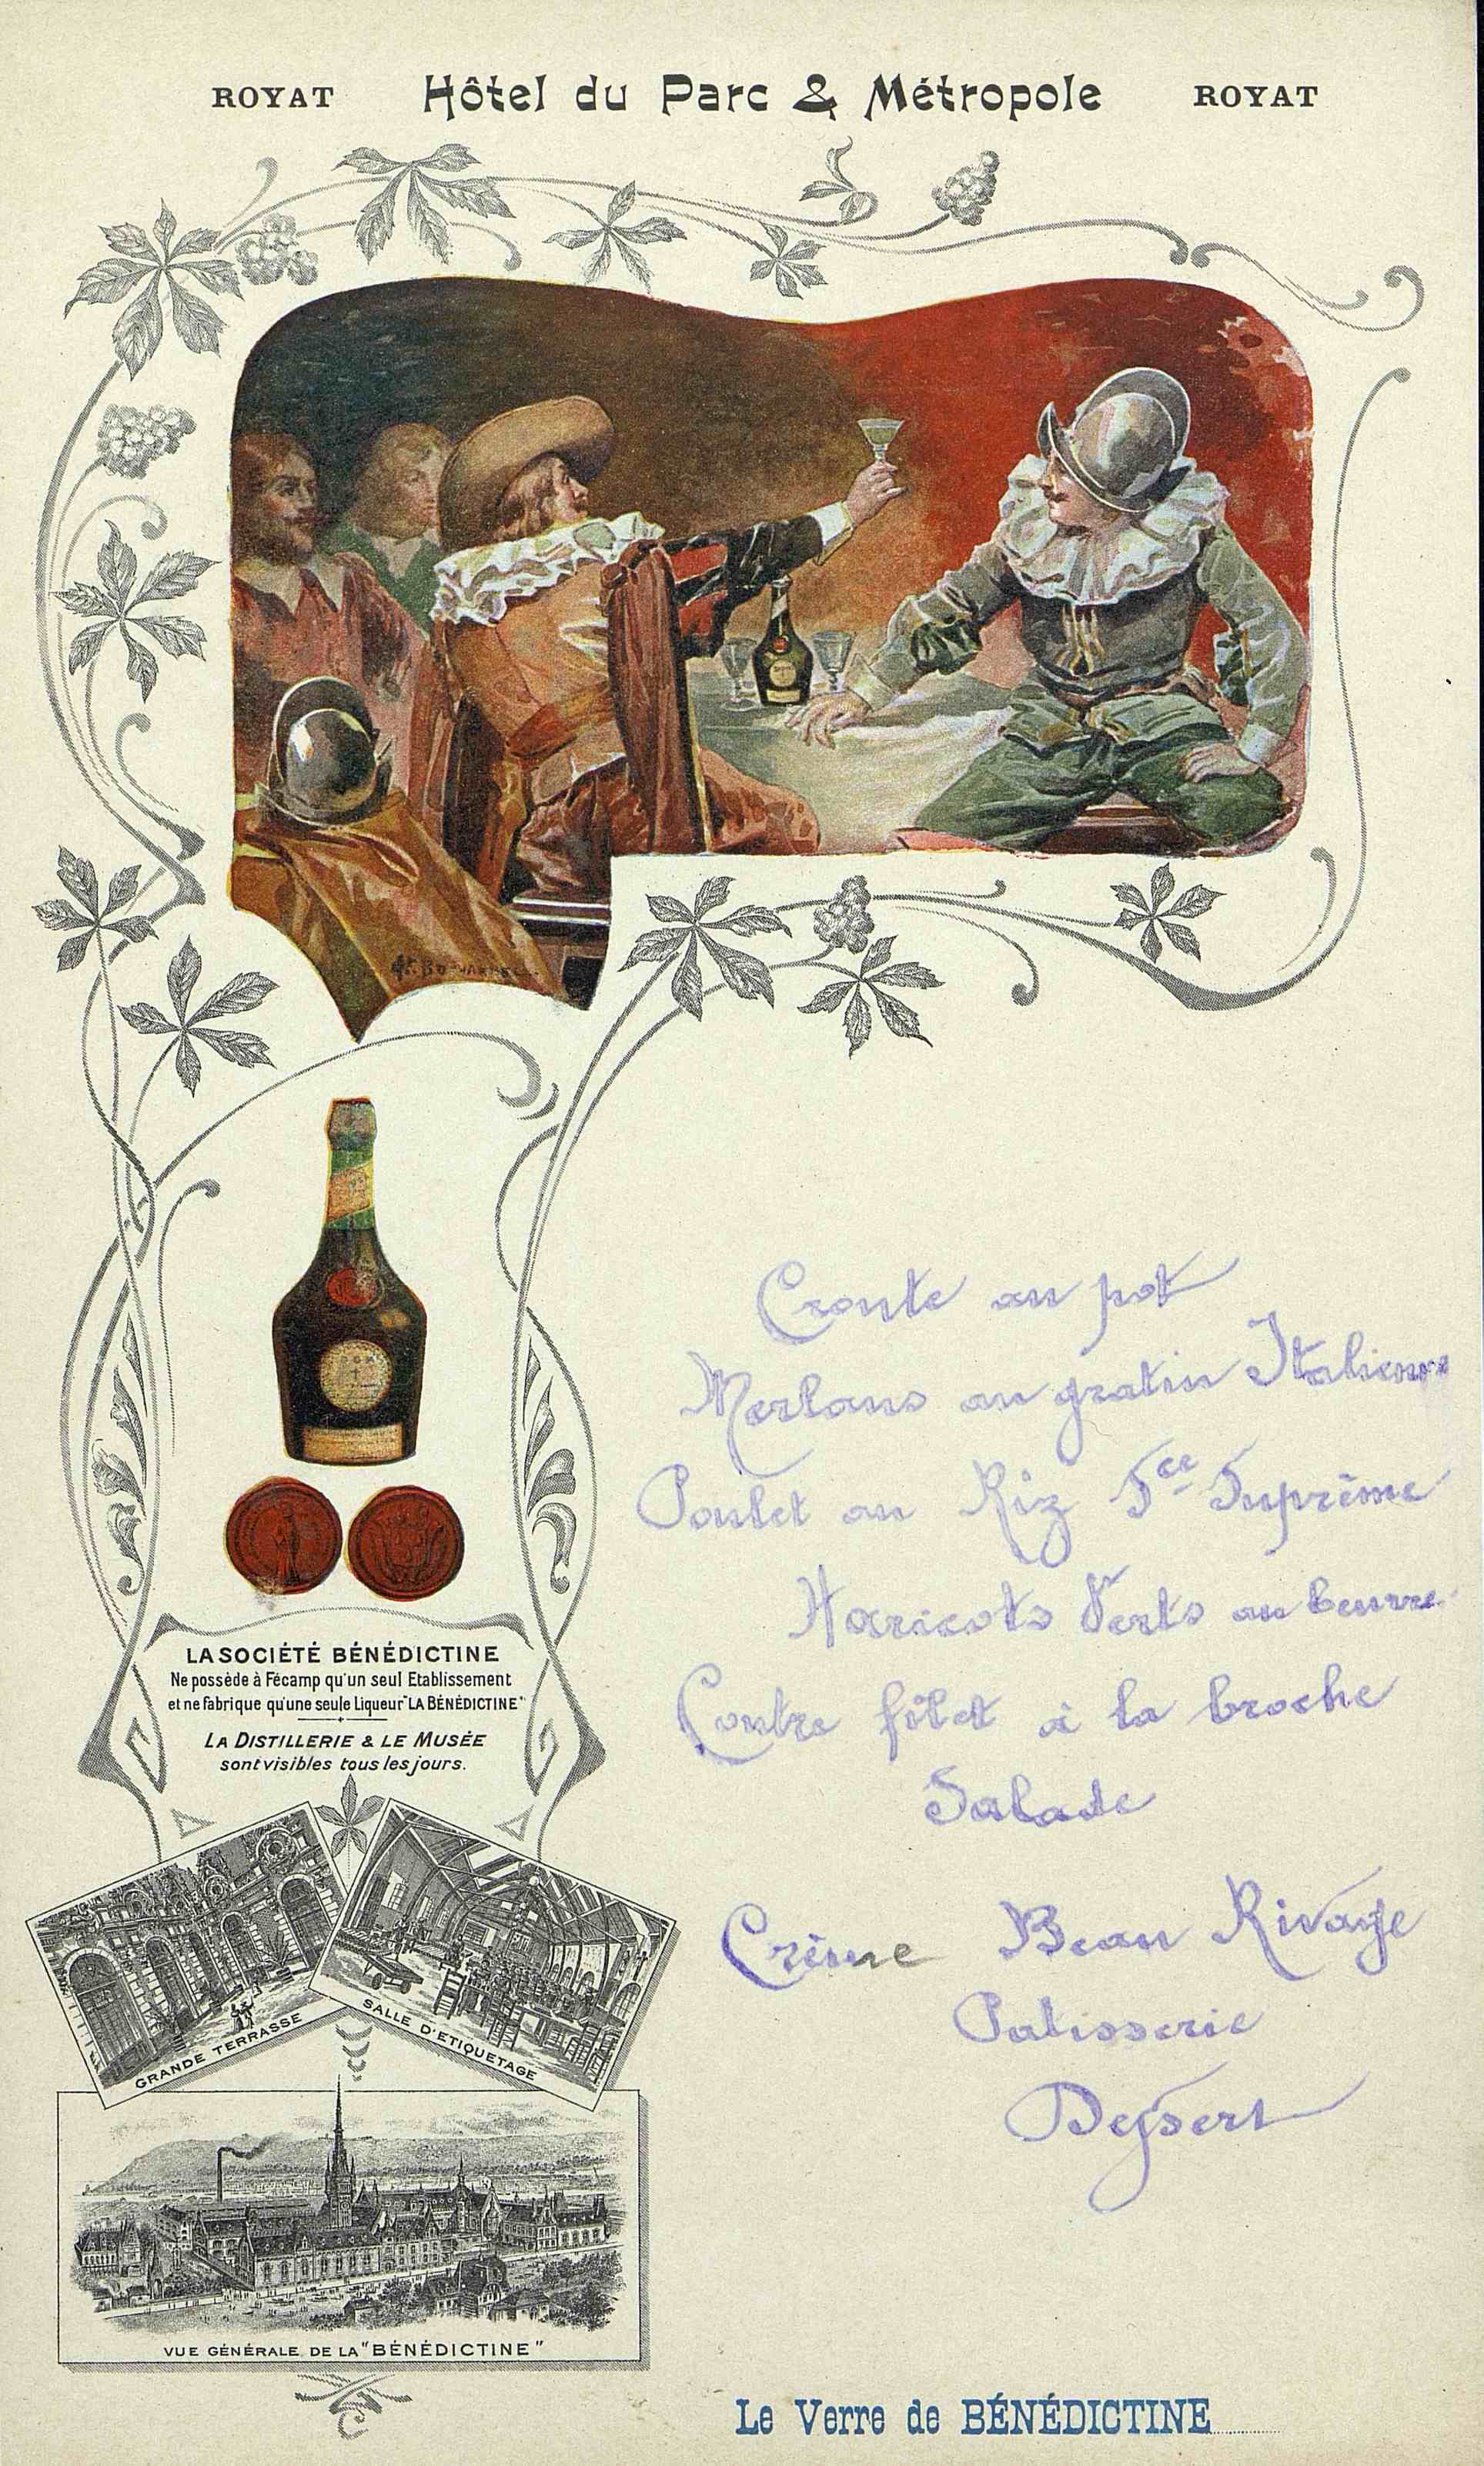 ROYAT Hôtel du Parc & Métropole ROYAT
Croute au pot
Merlans au gratin Italienne
Poulet au Riz Sce Suprême
Haricots Verts au beurre
Contre filet à la broche
Salade
Crème Beau Rivage
Patisserie
Dessert
LA SOCIÉTÉ BÉNÉDICTINE
Ne possède à Fécamp qu'un seul Etablissement
et ne fabrique qu'une seule Liqueur "LA BÉNÉDICTINE"
LA DISTILLERIE & LE MUSÉE
sont visibles tous les jours.
GRANDE TERRASSE
SALLE D'ETIQUETAGE
VUE GÉNÉRALE DE LA "BÉNÉDICTINE"
Le Verre de BÉNÉDICTINE